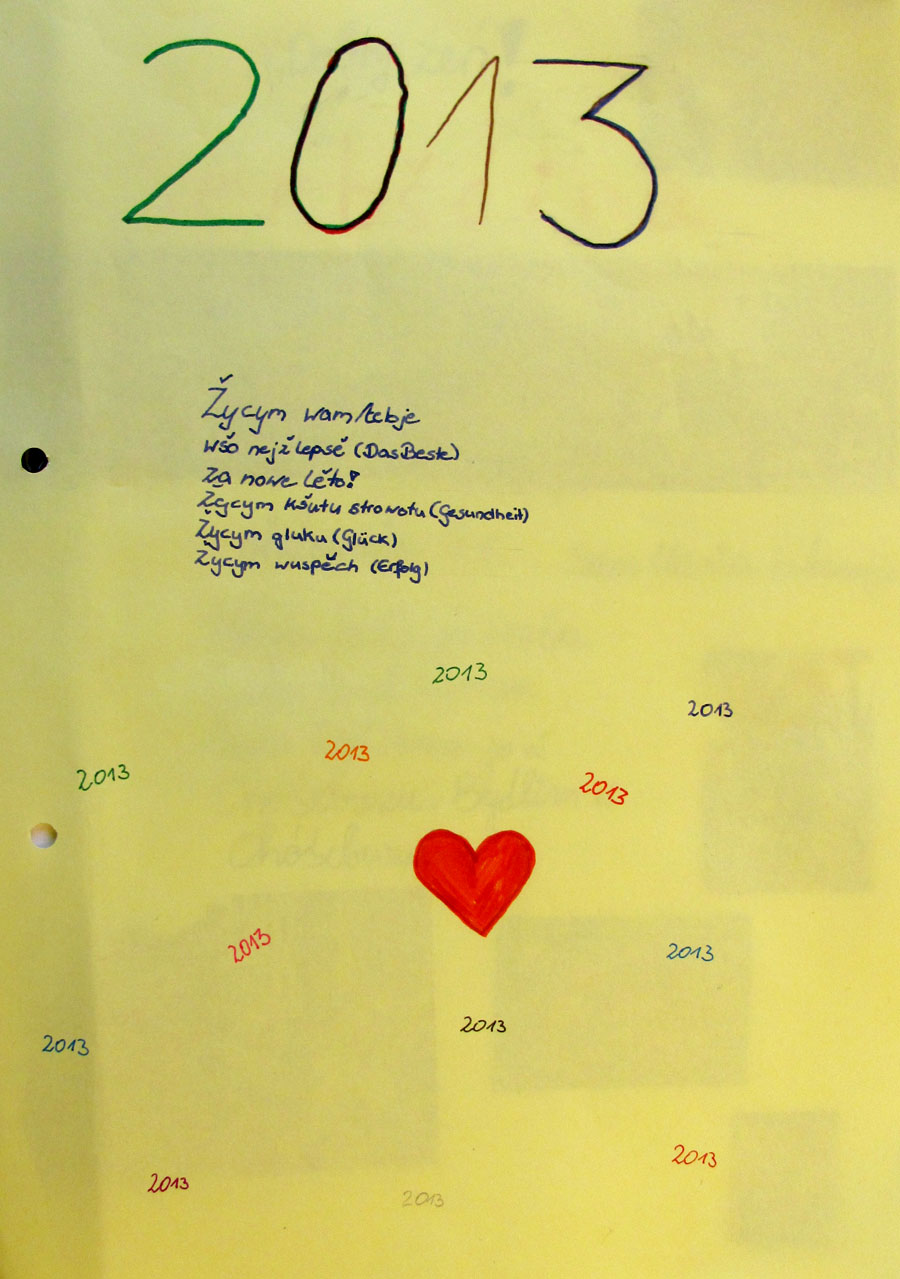 2013
Žycym wam/tebje
wšo nejžlepšě (Das Beste)
za nowe lěto!
Žycym kšutu strowotu (Gesundheit)
Žycym gluku (Glück)
Žycym wuspěch (Erfolg)
2013
2013
2013
2013
2013
2013
2013
2013
2013
2013
2013
2013